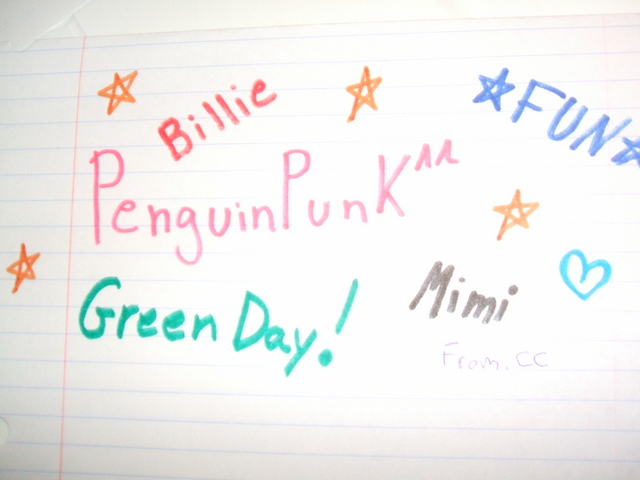 Billie
FUN
PenguinPunK^^
Green Day!
Mimi
From. CC